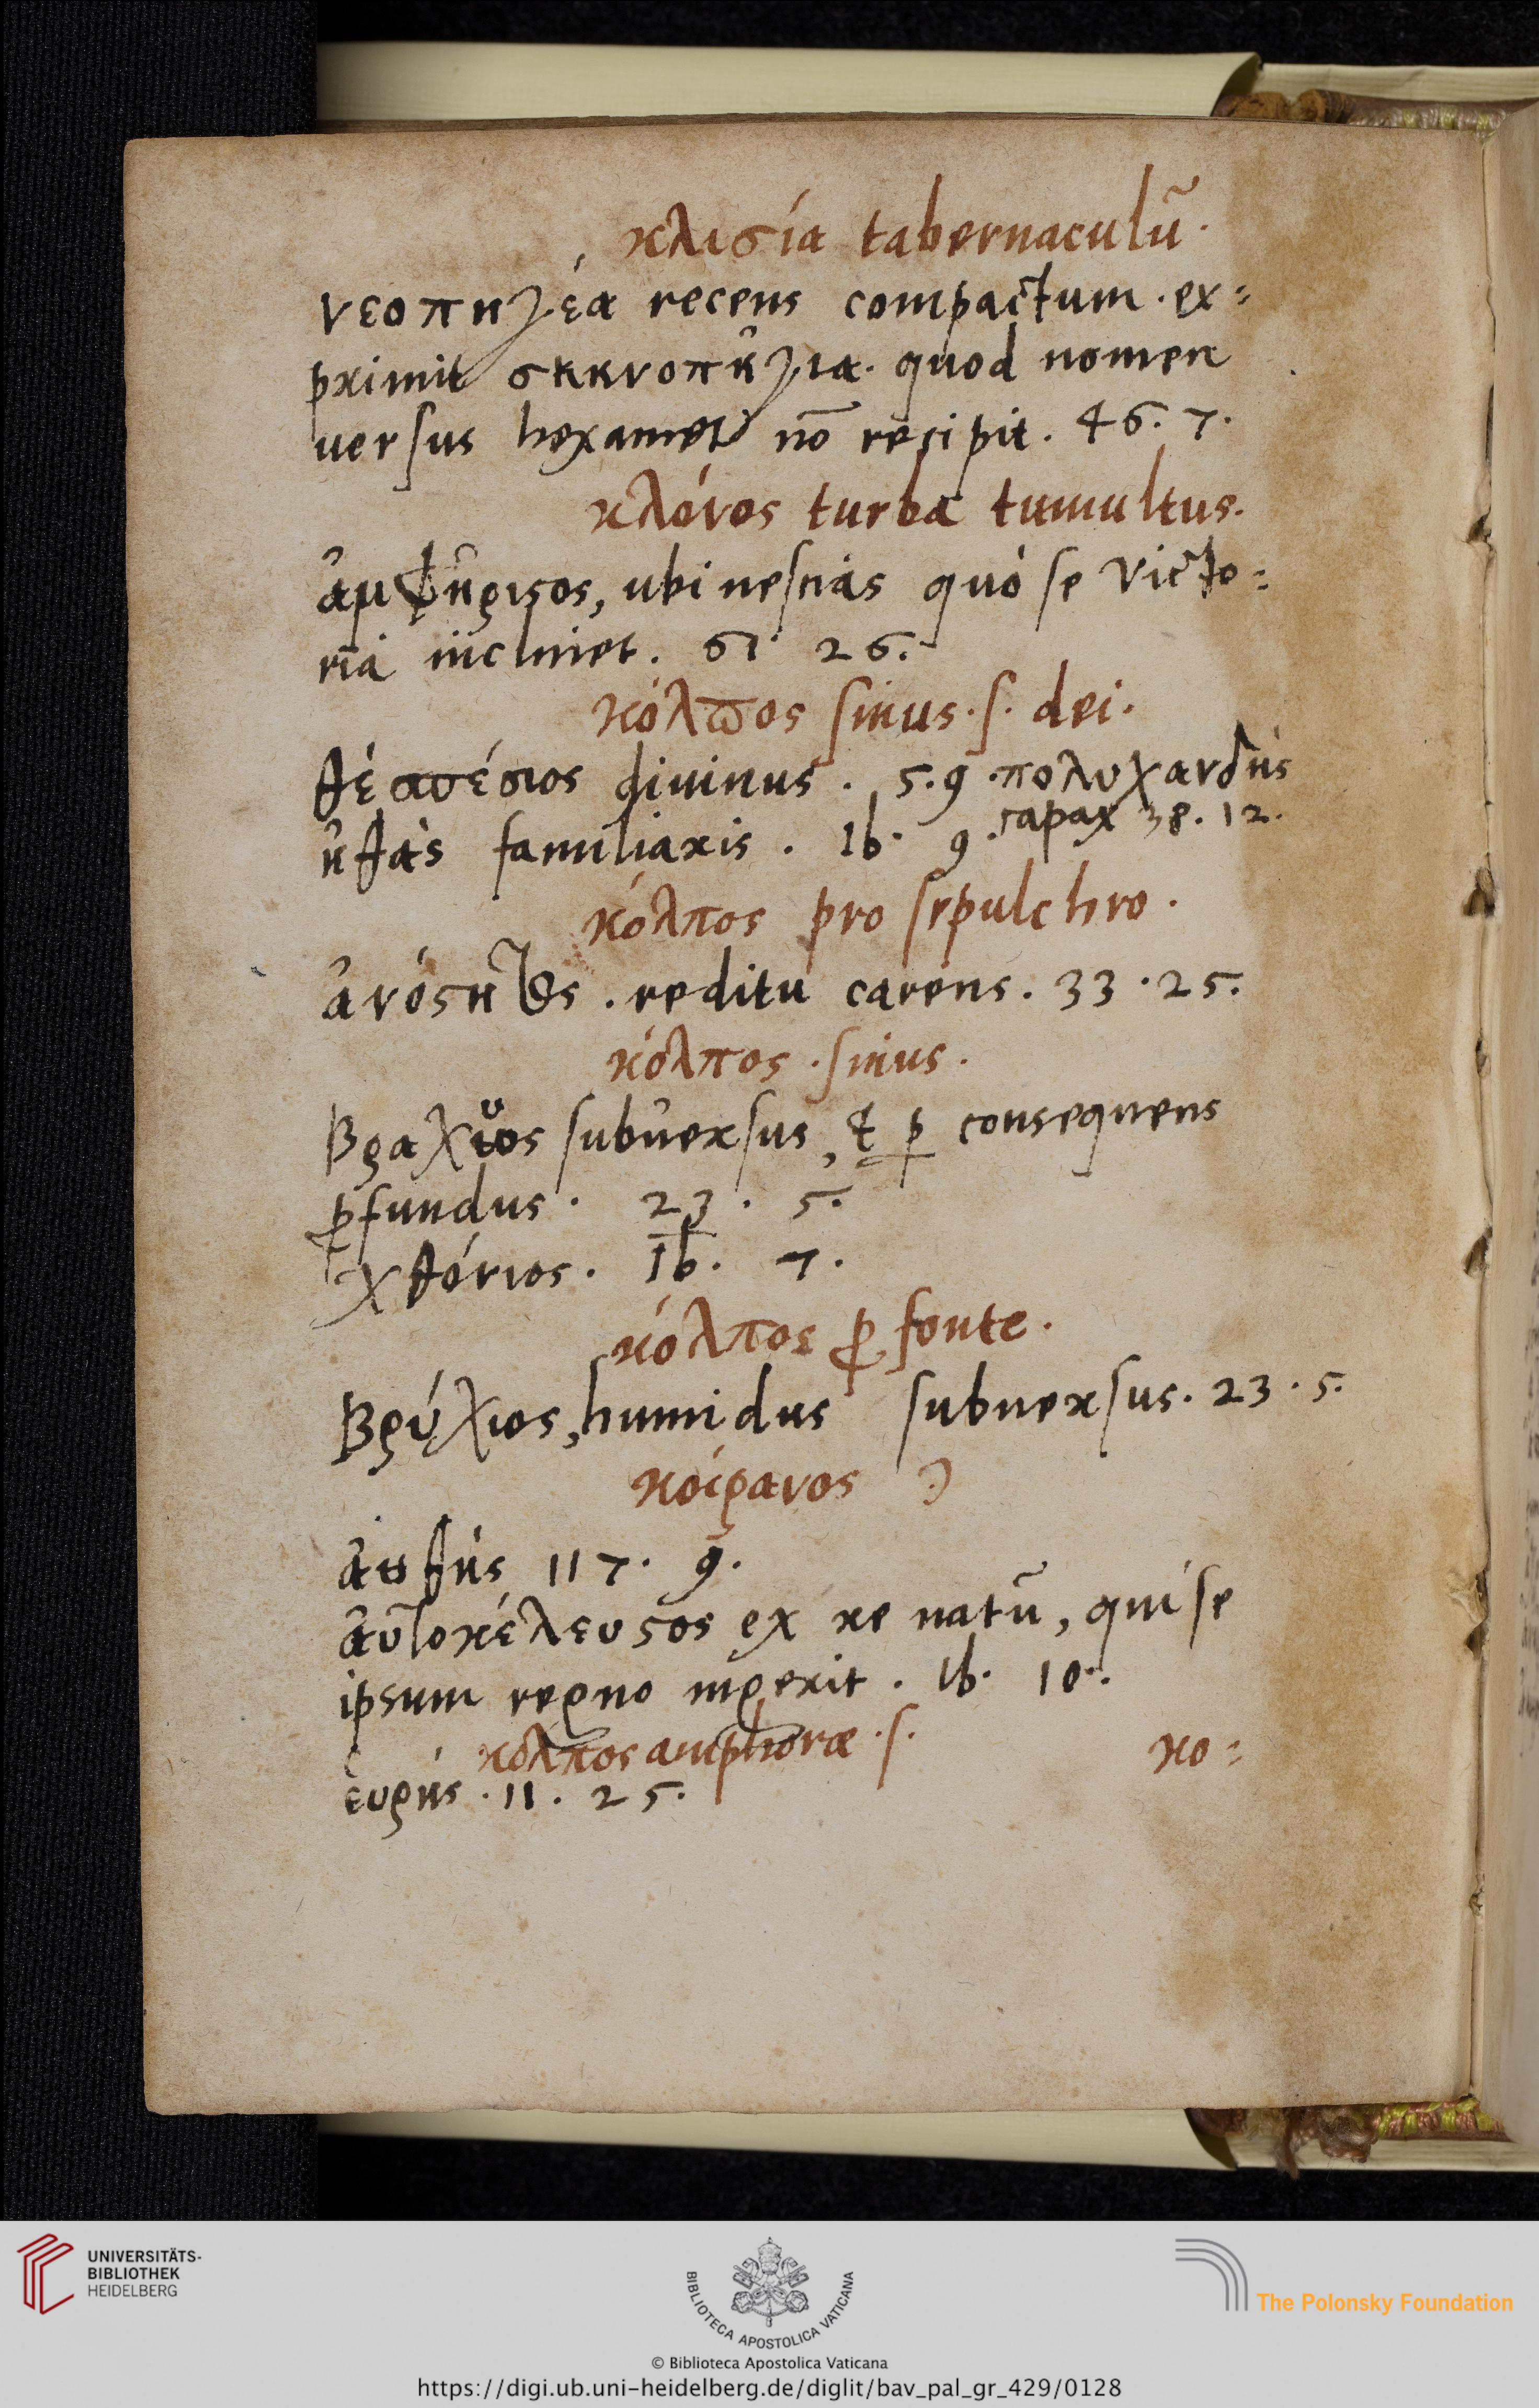 κλισία tabernaculũ.
νεοπηγέα recens compactum. ex=
primit σκηνοπήγια. quod nomen
uersus hexamet nõ recipit. 46. 7.
κλόνος turba tumultus.
ἀμφήριστος, ubi nescias quó se victo=
ria inclinet. 61. 26.
κόλπος sinus. s. dei.
θέσπέσιος diuinus. 5. 9. πολυχανδής
capax 38. 12.
ἠθὰς familiaris. Ib. 9.
κόλπος pro sepulchro.
ἀνόστητος. reditu carens. 33. 25.
κόλπος. sinus.
Βρα χιος subuersus, et p consequens
pfundus. 23. 5.
χθόνιος. Ib. 7.
κόλπος p fonte.
Βρύχιος, humidus subuersus. 23. 5.
κοίρανος
ἀήθης 117. 9.
ἀυτοκέλευστος ex re natũ, qui se
ipsum regno ingerit. Ib. 10.
κόλπος amphoræ. s.
ἐυρύς. 11. 25.
κο=
UNIVERSITÄTS-
BIBLIOTHEK
HEIDELBERG
BIBLIOTECA APOSTOLICA VATICANA
The Polonsky Foundation
© Biblioteca Apostolica Vaticana
https://digi.ub.uni-heidelberg.de/diglit/bav_pal_gr_429/0128